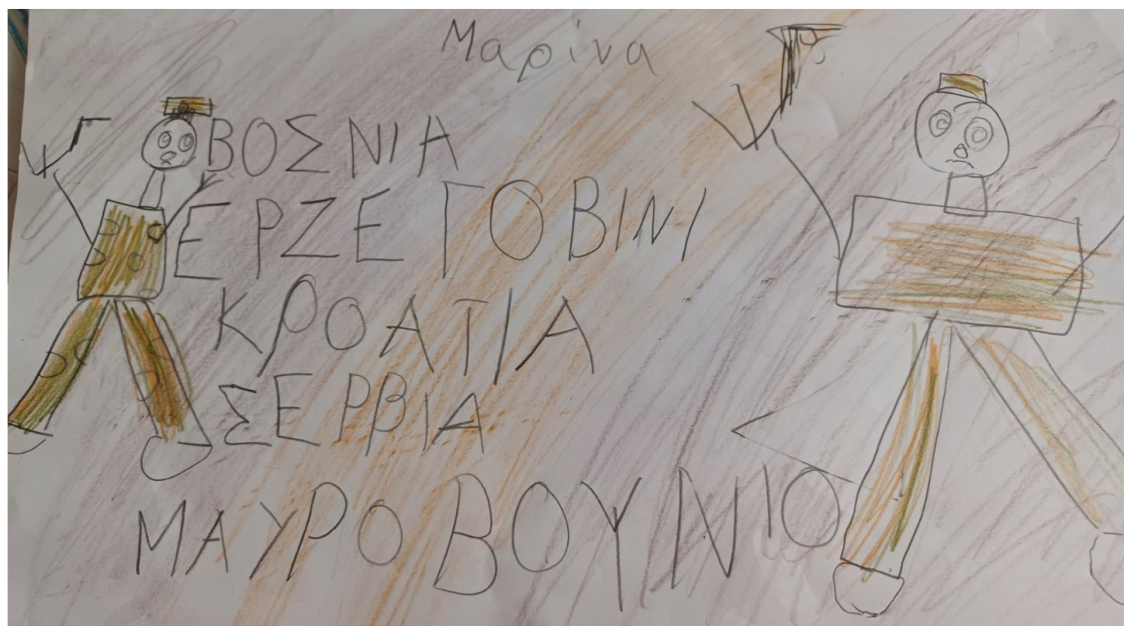 Μαρίνα
ΒΟΣΝΙΑ
ΕΡΖΕΓΟΒΙΝΙ
ΚΡΟΑΤΙΑ
ΣΕΡΒΙΑ
ΜΑΥΡΟΒΟΥΝΙΟ